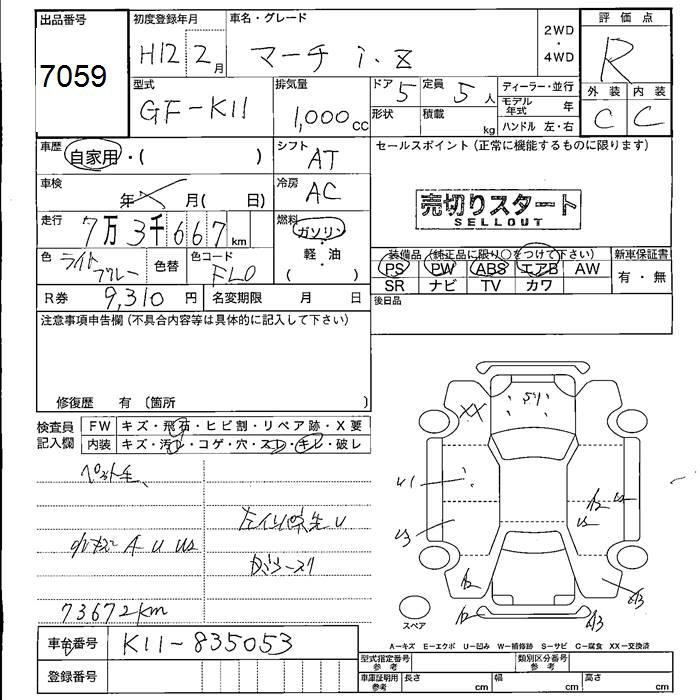 出品番号 初度登録年月 車名・グレード 2WD・4WD 評価点
7059 H12 2月 マーチ i・Z R
型式 排気量 ドア 5 定員 5人 ディーラー・並行 外装 内装
GF-K11 1,000cc 形状 積載 kg モデル年式 年 C C
ハンドル 左・右
車歴 自家用・( ) シフト AT セールスポイント (正常に機能するものに限ります)
車検 年 月( 日) 冷房 AC 売切りスタート
SELLOUT
走行 7万3千667km 燃料 ガソリン・軽油 ( )
色 ライトブルー 色替 色コード FL0
装備品 (純正品に限り○をつけて下さい) 新車保証書
PS PW ABS エアB AW 有・無
SR ナビ TV カワ
R券 9,310円 名変期限 月 日 後日品
注意事項申告欄 (不具合内容等は具体的に記入して下さい)
修復歴 有 〔箇所 〕
検査員記入欄 FW キズ・飛石・ヒビ割・リペア跡・X要
内装 キズ・汚レ・コゲ・穴・スレ・キレ・破レ
XX
U1
U3
A2
A3
A U
73672km
スペア
車台番号 K11-835053
A−キズ E−エクボ U−凹み W−補修跡 S−サビ C−腐食 XX−交換済
登録番号
型式指定番号 参考 類別区分番号 参考
車庫証明用 参考 長さ cm 幅 cm 高さ cm